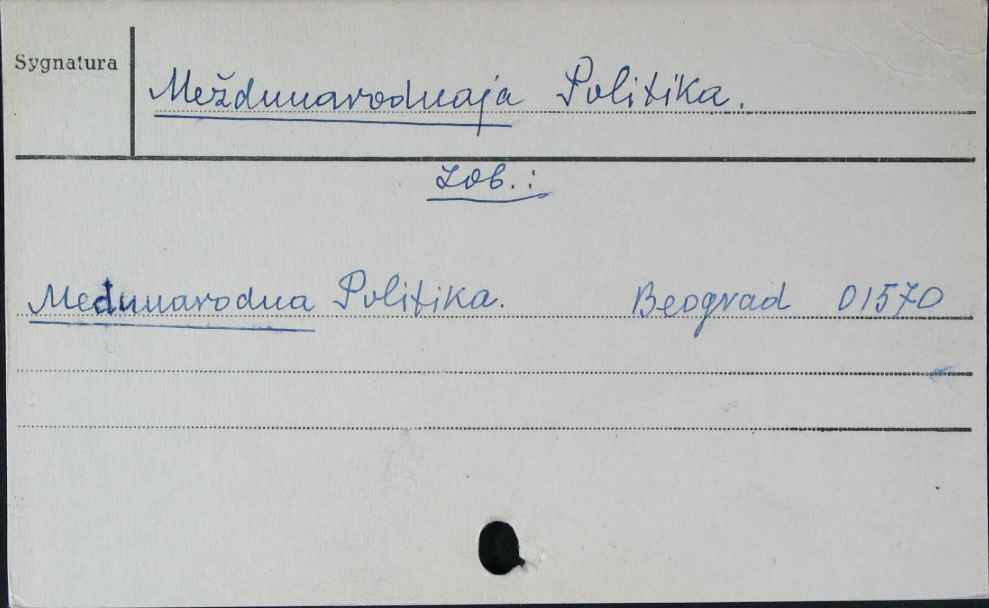 Sygnatura
Meždunarodnaja Politika.
Zob.:
Medunarodna Politika. Beograd 01570